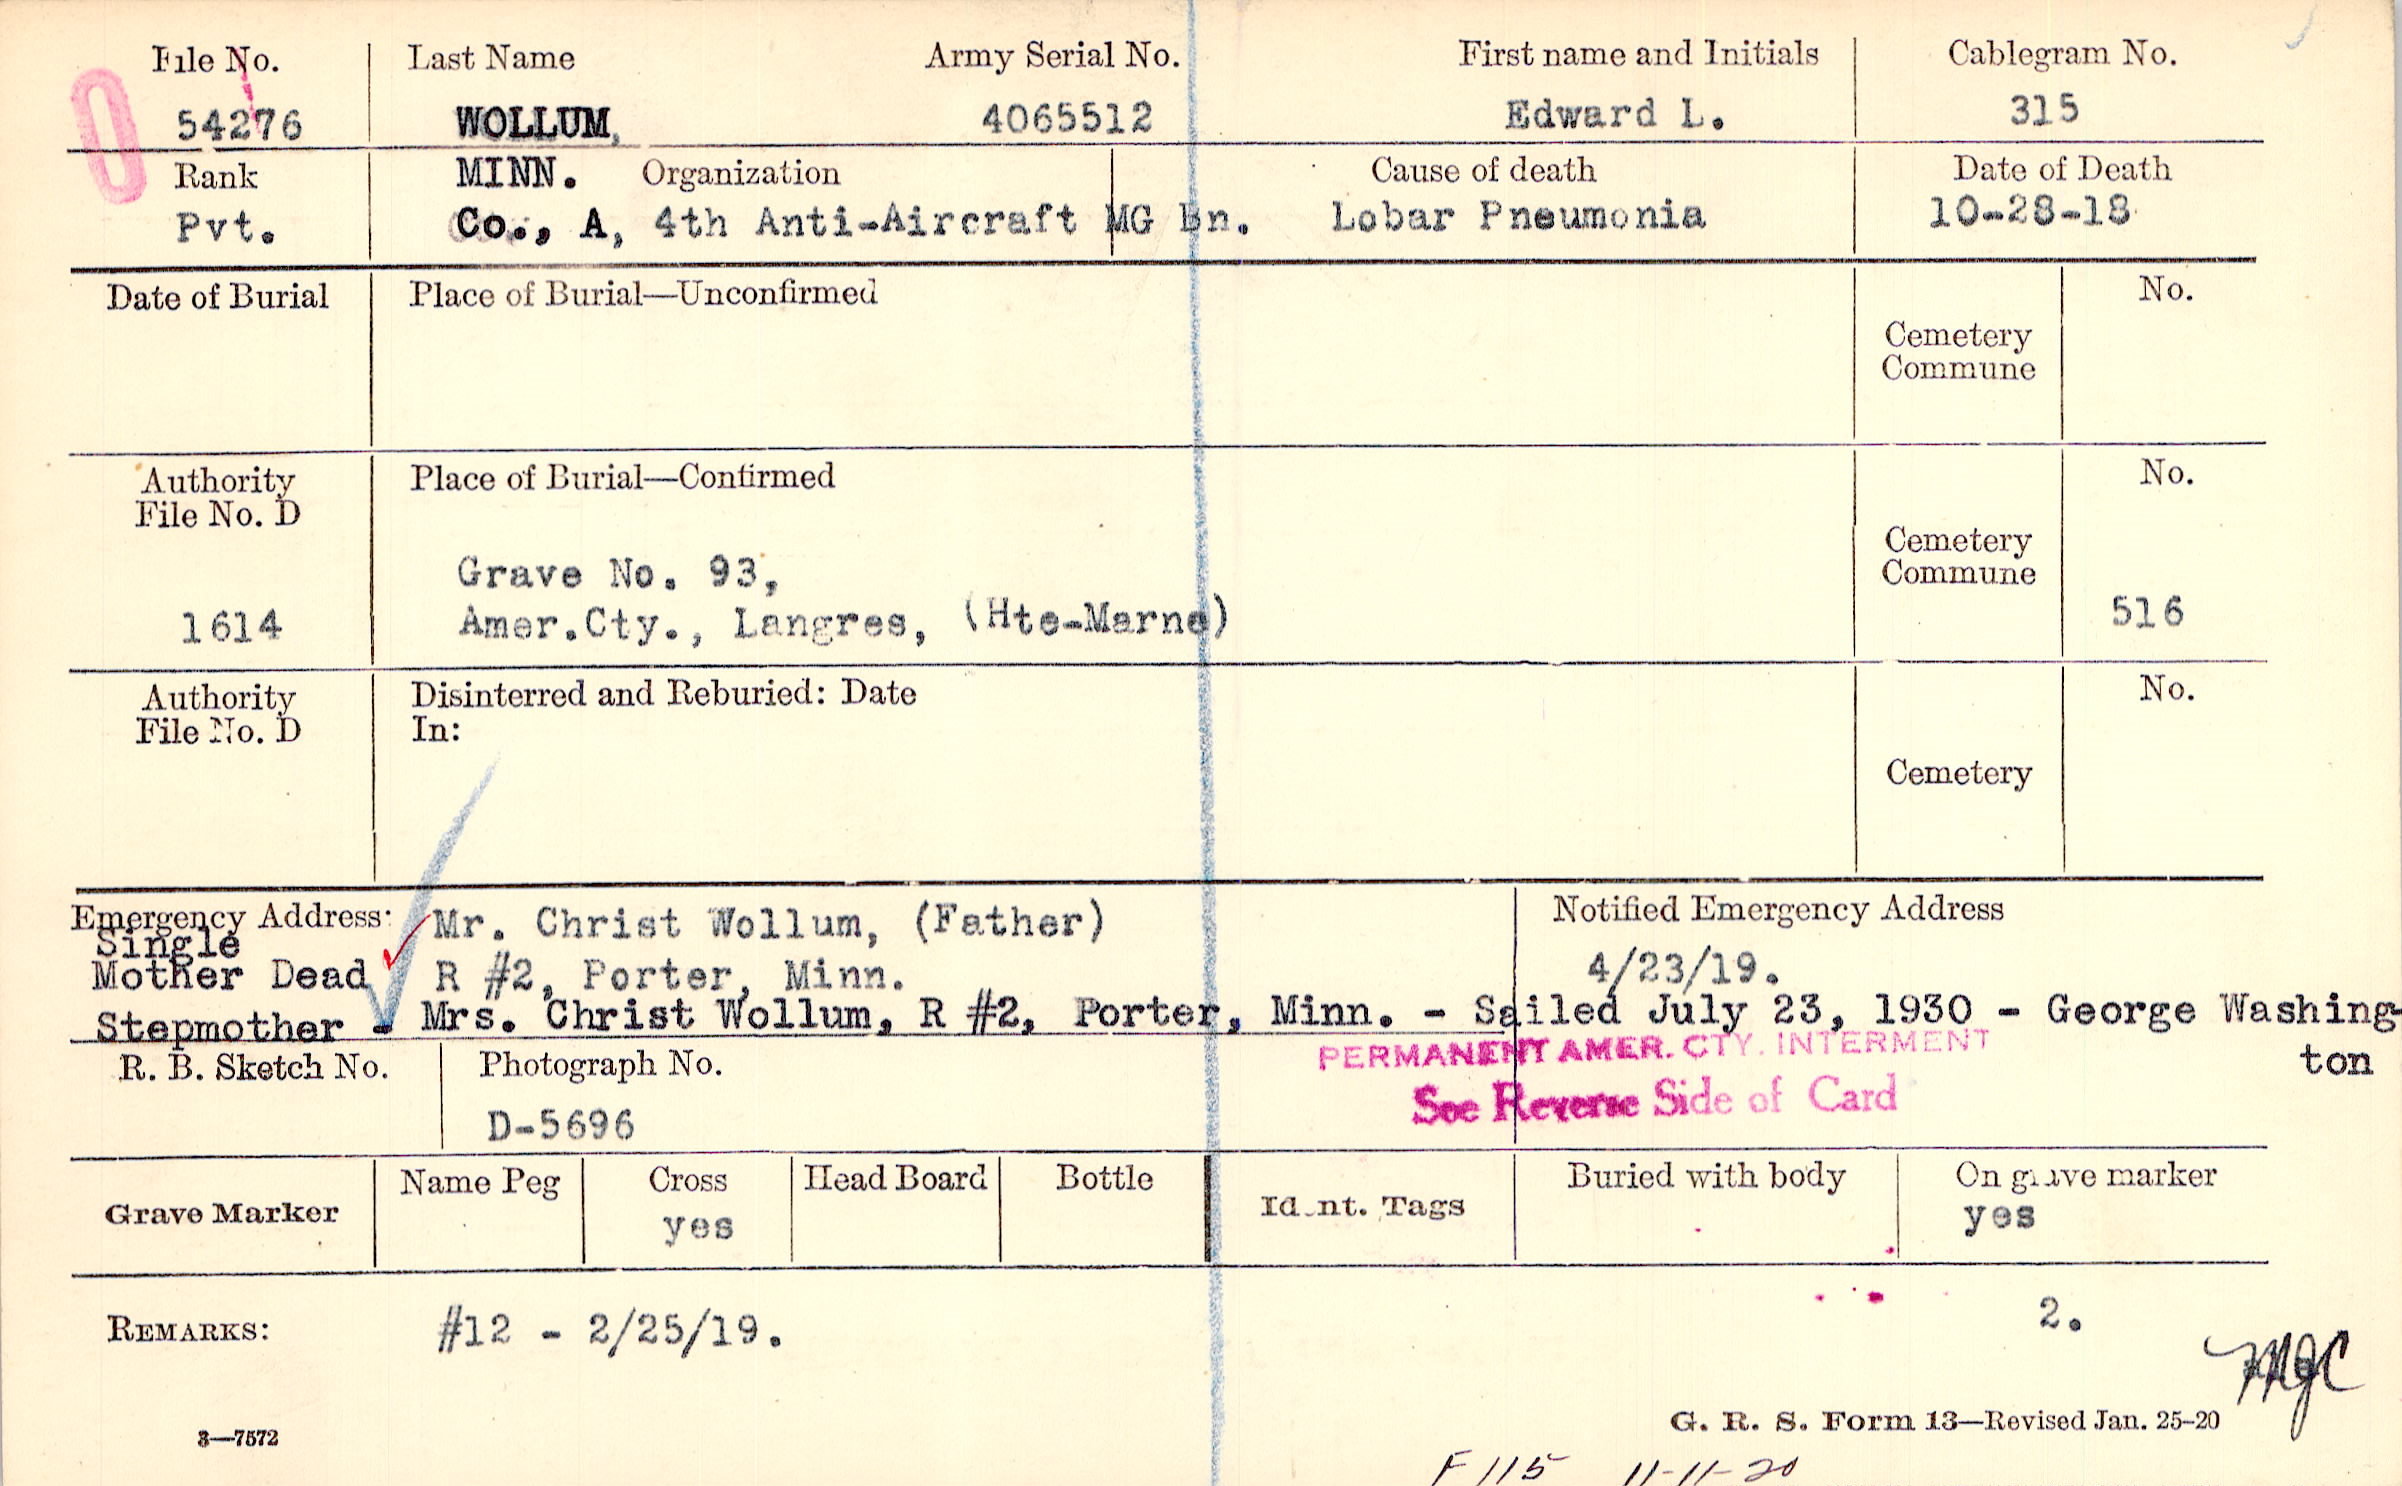 File No. Last Name Army Serial No. First name and Initials Cablegram No.
54276 WOLLUM, 4065512 Edward L. 315
Rank MINN. Organization Cause of death Date of Death
Pvt. Co., A, 4th Anti-Aircraft MG Bn. Lobar Pneumonia 10-28-18
Date of Burial Place of Burial—Unconfirmed No.
Cemetery
Commune
Authority Place of Burial—Confirmed No.
File No. D
Cemetery
Grave No. 93, Commune
1614 Amer.Cty., Langres, (Hte-Marne) 516
Authority Disinterred and Reburied: Date No.
File No. D In:
Cemetery
Emergency Address: Mr. Christ Wollum, (Father) Notified Emergency Address
Single
Mother Dead R #2, Porter, Minn. 4/23/19.
Stepmother - Mrs. Christ Wollum, R #2, Porter, Minn. - Sailed July 23, 1930 - George Washing-
ton
PERMANENT AMER. CTY. INTERMENT
R. B. Sketch No. Photograph No.
See Reverse Side of Card
D-5696
Grave Marker Name Peg Cross Head Board Bottle Ident. Tags Buried with body On grave marker
yes yes
REMARKS: #12 - 2/25/19. 2.
MGC
G. R. S. Form 13—Revised Jan. 25-20
3—7572
F 115 11-11-20